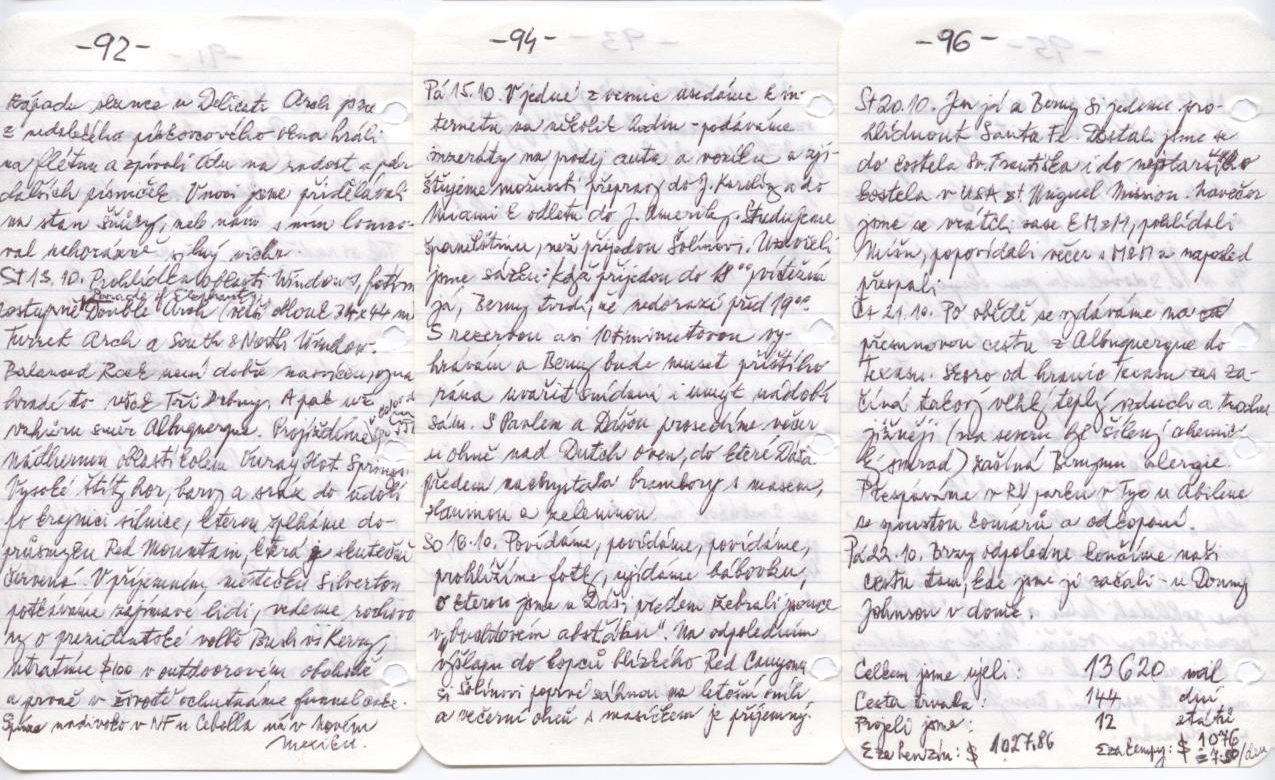 -92-
západu slunce u Delicate Arch jsme
z nedalekého pískovcového okna hráli
na flétnu a zpívali Otu na radost a pár
dalších písniček. V noci jsme přidělávali
na stan šňůry, neb námi s ním lomco-
val nehorázně silný vichr.
St 13.10. Prohlídka oblasti Windows, fotím
Parade of Elephants
dostupné Double Arch (větší oblouk 34 x 44 m
Turret Arch a South & North Window.
Balanced Rock není dobře nasvícen,
hradí to však Tři Drbny. A pak už
vzhůru směr Albuquerque. Projíždíme
nádhernou oblastí kolem Ouray Hot Springs.
Vysoké štíty hor, barvy a sráz do údolí
po krajnici silnice, kterou šplháme do
průsmyku Red Mountain, která je skutečně
červená. V příjemném městečku Silverton
potkáváme zajímavé lidi, vedeme rozhovo-
ry o prezidentské volbě Bush vs Kerry,
utratíme $100 v outdoorovém obchodě
a prvně v životě ochutnáme funnel cake.
Spíme nadivoko v NF u Cebolla už v Novém
Mexiku.
-94-
Pá 15.10. V jedné z vesnic usedáme k in-
ternetu na několik hodin - podáváme
inzeráty na prodej auta a vozíku a zji-
šťujeme možnosti přepravy do J. Karolíny a do
Miami k odletu do J. Ameriky. Studujeme
španělštinu, než přijedou Šolínovi. Uzavřeli
jsme sázku: Když přijedou do 18⁰⁰ vítězím
já, Berny tvrdí, že nedorazí před 19⁰⁰.
S rezervou asi 10timinutovou vy-
hrávám a Berny bude muset příštího
rána uvařit snídani i umýt nádobí
sám. S Pavlem a Dášou prosedíme večer
u ohně nad Dutch oven, do které Dáša
předem nachystala brambory s masem,
slaninou a zeleninou.
So 16.10. Povídáme, povídáme, povídáme,
prohlížíme fotky, ujídáme bábovku,
o kterou jsme u Dáši předem žebrali
v „buchtovém absťáku". Na odpoledním
výšlapu do kopců blízkého Red Canyonu
si Šolínovi poprvé sáhnou na letošní sníh
a večerní oheň s masíčkem je příjemný.
-96-
St 20.10. Jen já a Berny si jedeme pro-
hlédnout Santa Fe. Dostali jsme se
do kostela Sv. Františka i do nejstaršího
kostela v USA St. Miguel Mission. Navečer
jsme se vrátili zase k M&M, pohlídali
Mišu, popovídali večer s M&M a naposled
přespali.
Čt 21.10. Po obědě se vydáváme na
přesunovou cestu z Albuquerque do
Texasu. Skoro od hranic Texasu zas za-
číná takový vlhký teplý vzduch a trochu
jižněji (na severu byl šílený chemic-
ký smrad) začíná Bernymu alergie.
Přespáváme v RV parku v Tye u Abilene
se spoustou komárů a odkopaní.
Pá 22.10. Brzy odpoledne končíme naši
cestu tam, kde jsme ji začali - u Donny
Johnson v domě.
Celkem jsme ujeli: 13 620 mil
Cesta trvala: 144 dní
Projeli jsme: 12 států
Σ za benzín: $ 1027,86 Σ za kempy: $ 1076
= 7.50/den